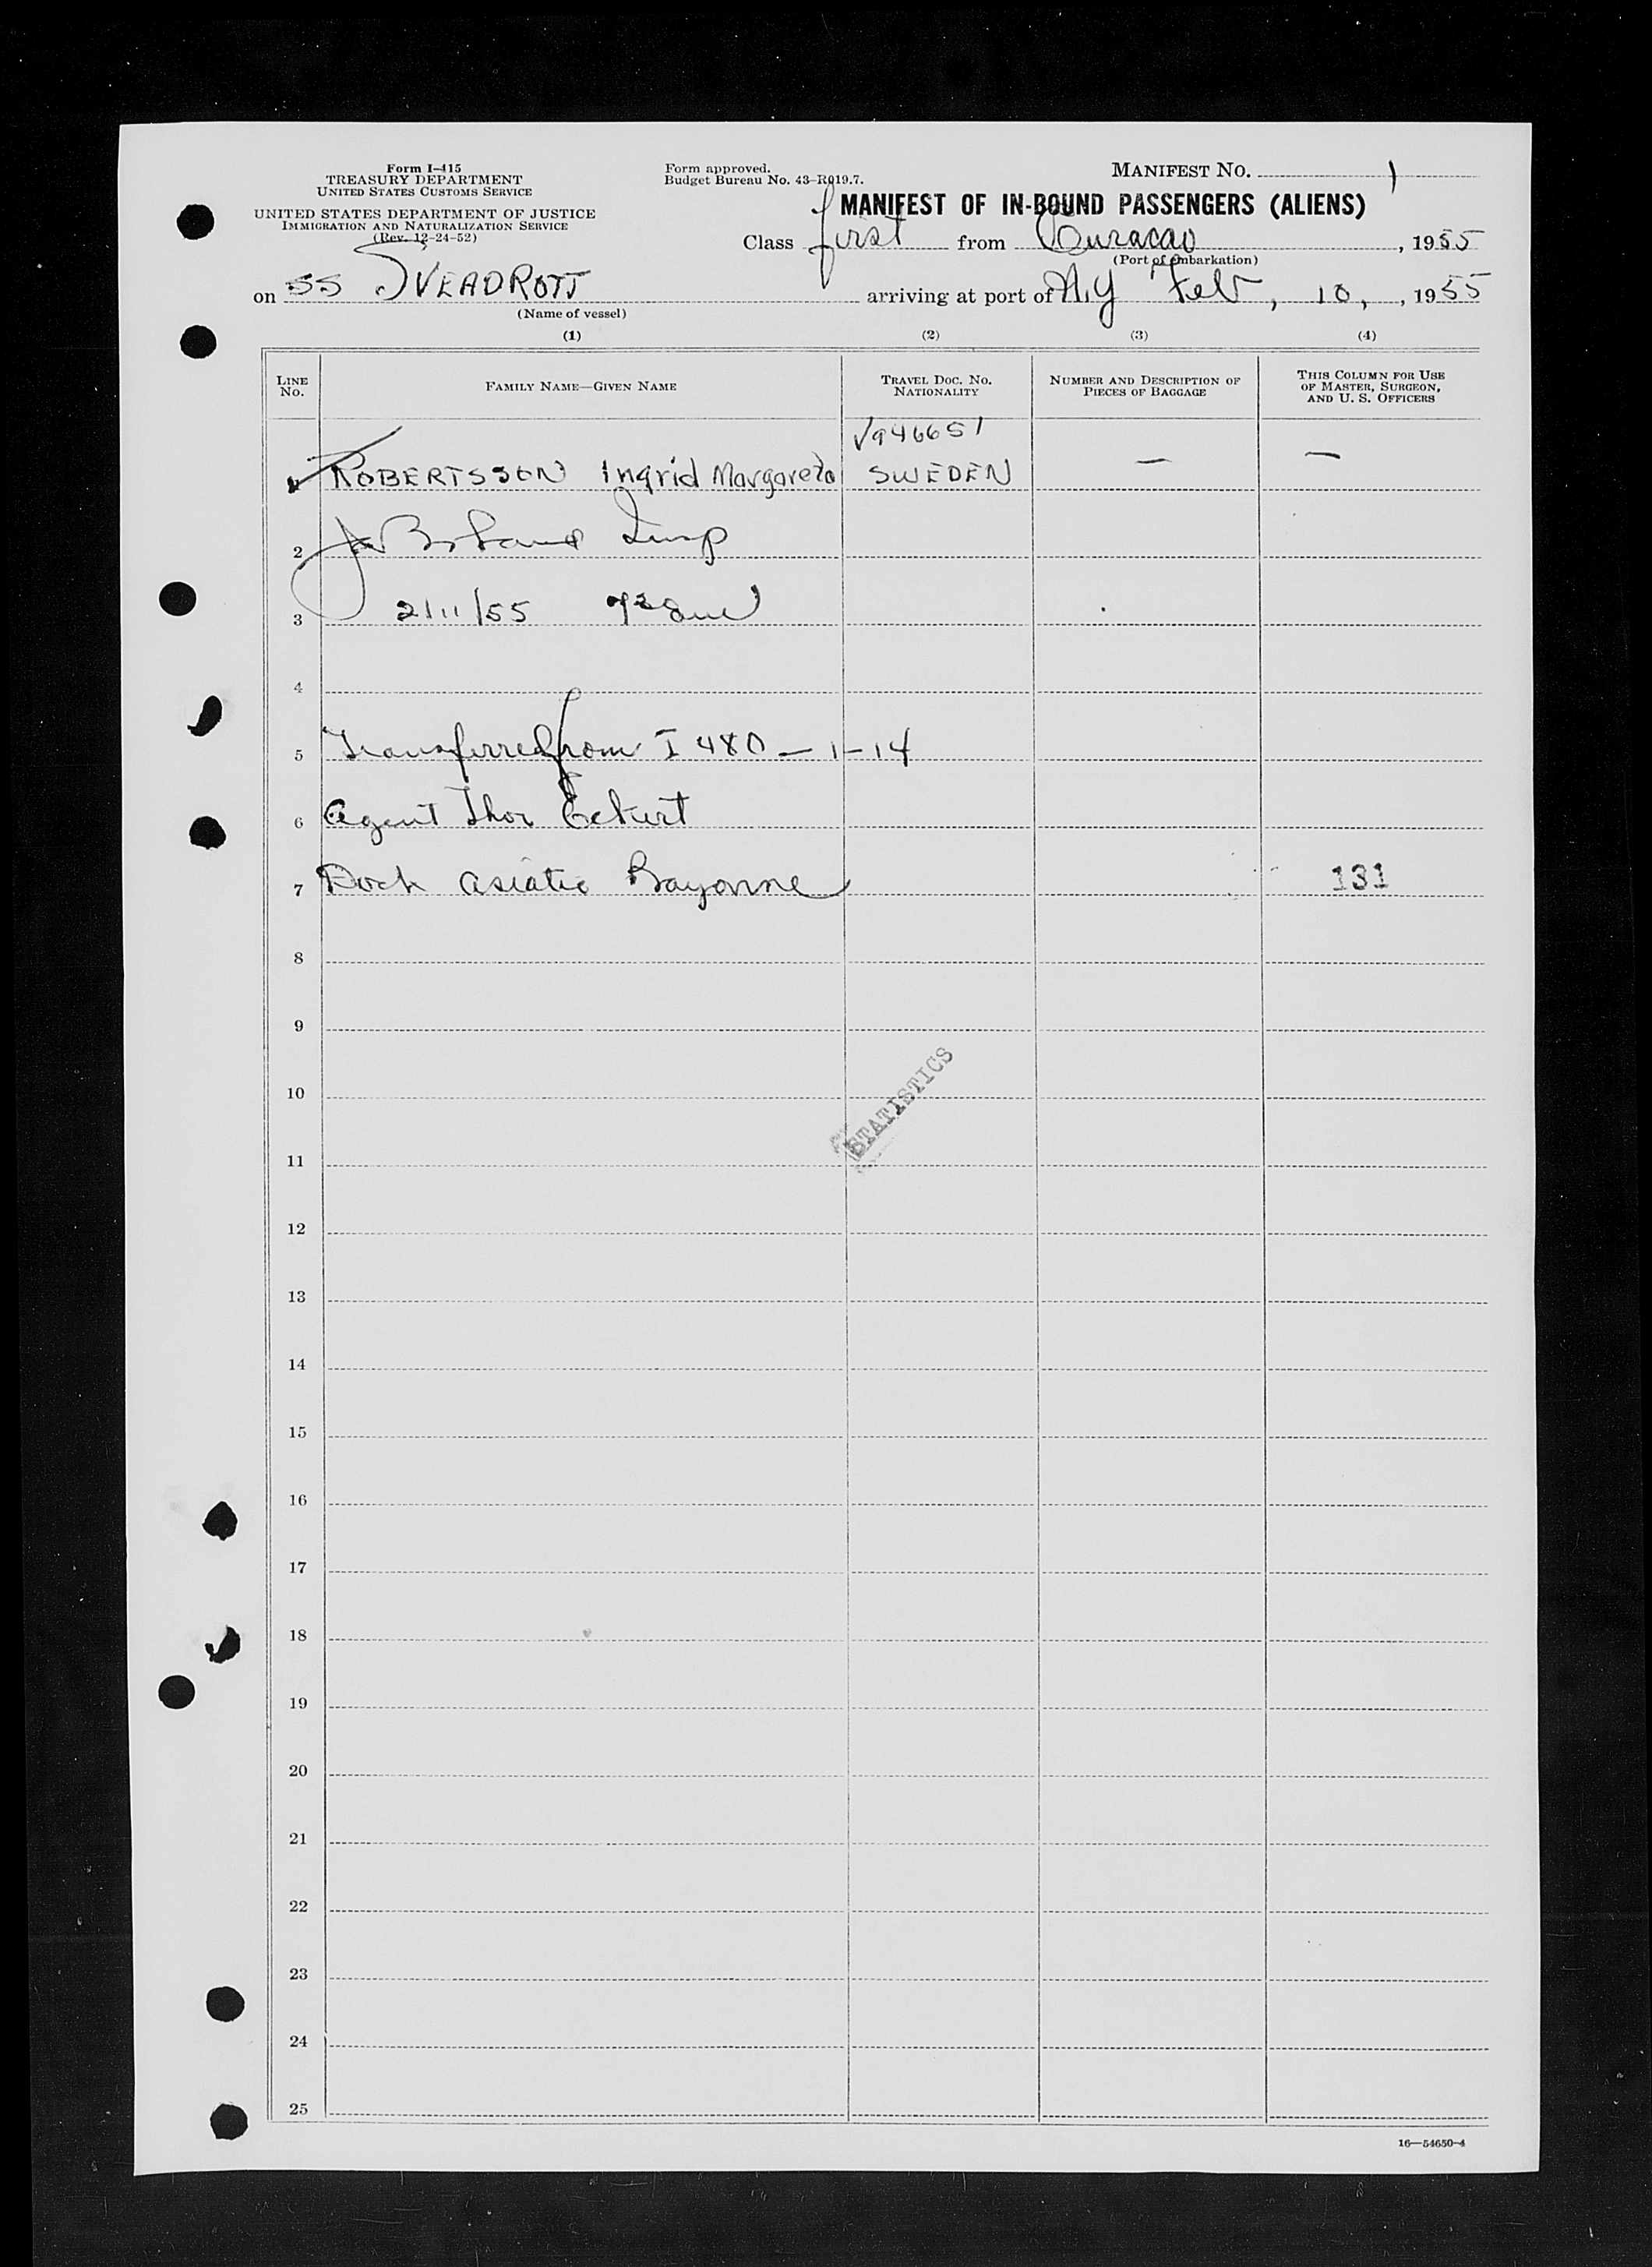 Form I-415
TREASURY DEPARTMENT
UNITED STATES CUSTOMS SERVICE
UNITED STATES DEPARTMENT OF JUSTICE
IMMIGRATION AND NATURALIZATION SERVICE
(Rev. 12-24-52)
Form approved.
Budget Bureau No. 43-R019.7.
MANIFEST No. 1
MANIFEST OF IN-BOUND PASSENGERS (ALIENS)
Class first from Curacao, 1955
(Port of embarkation)
on SS SVEADROTT arriving at port of N.Y Feb, 10, , 1955
(Name of vessel)
(1) (2) (3) (4)
LINE No. FAMILY NAME—GIVEN NAME TRAVEL DOC. NO. NATIONALITY NUMBER AND DESCRIPTION OF PIECES OF BAGGAGE THIS COLUMN FOR USE OF MASTER, SURGEON, AND U. S. OFFICERS
V946651
ROBERTSSON Ingrid Margareta SWEDEN — —
2 Insp
3 2/11/55
4
5 Transferred from I 480 — 1 — 14
6 Agent Thor Eckert
7 Dock Asiatic Bayonne 131
8
9
10
STATISTICS
11
12
13
14
15
16
17
18
19
20
21
22
23
24
25
16—54650-4